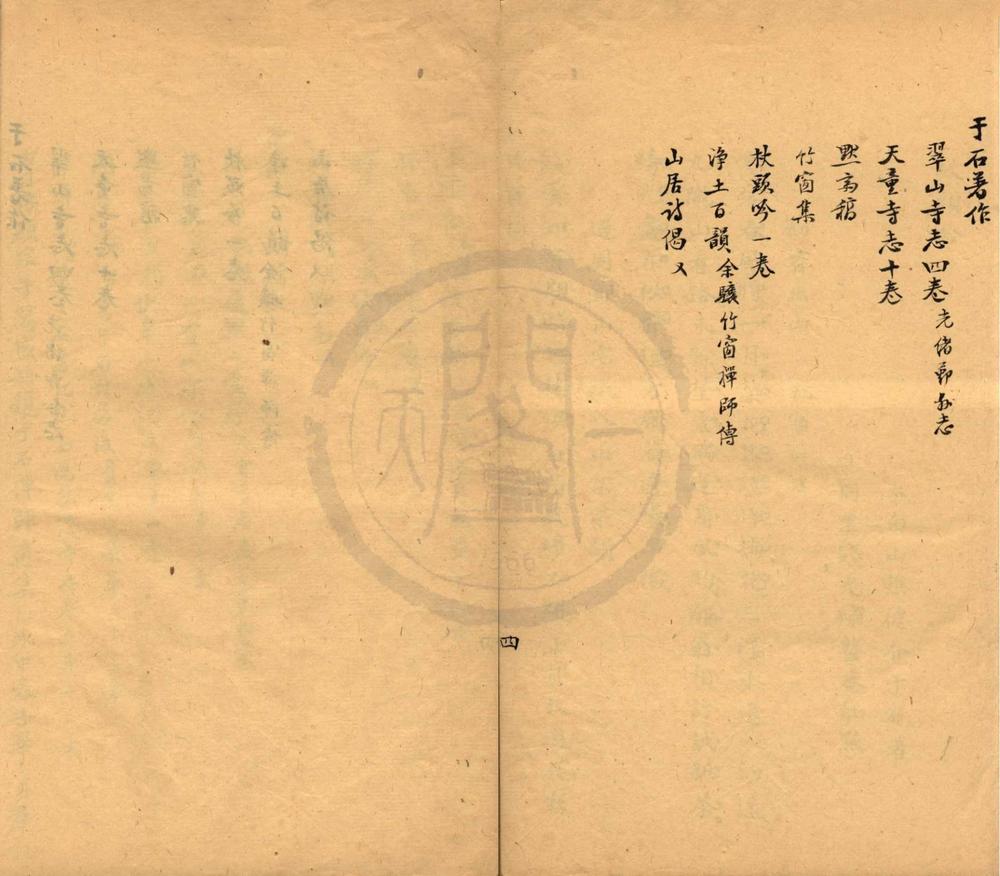 于石著作
翠山寺志四卷光緒鄞縣志
天童寺志十卷
點高稿
竹窗集
杖頭吟一卷
淨土百韻余驤竹窗禪師傳
山居詩偈又
四
天一閣